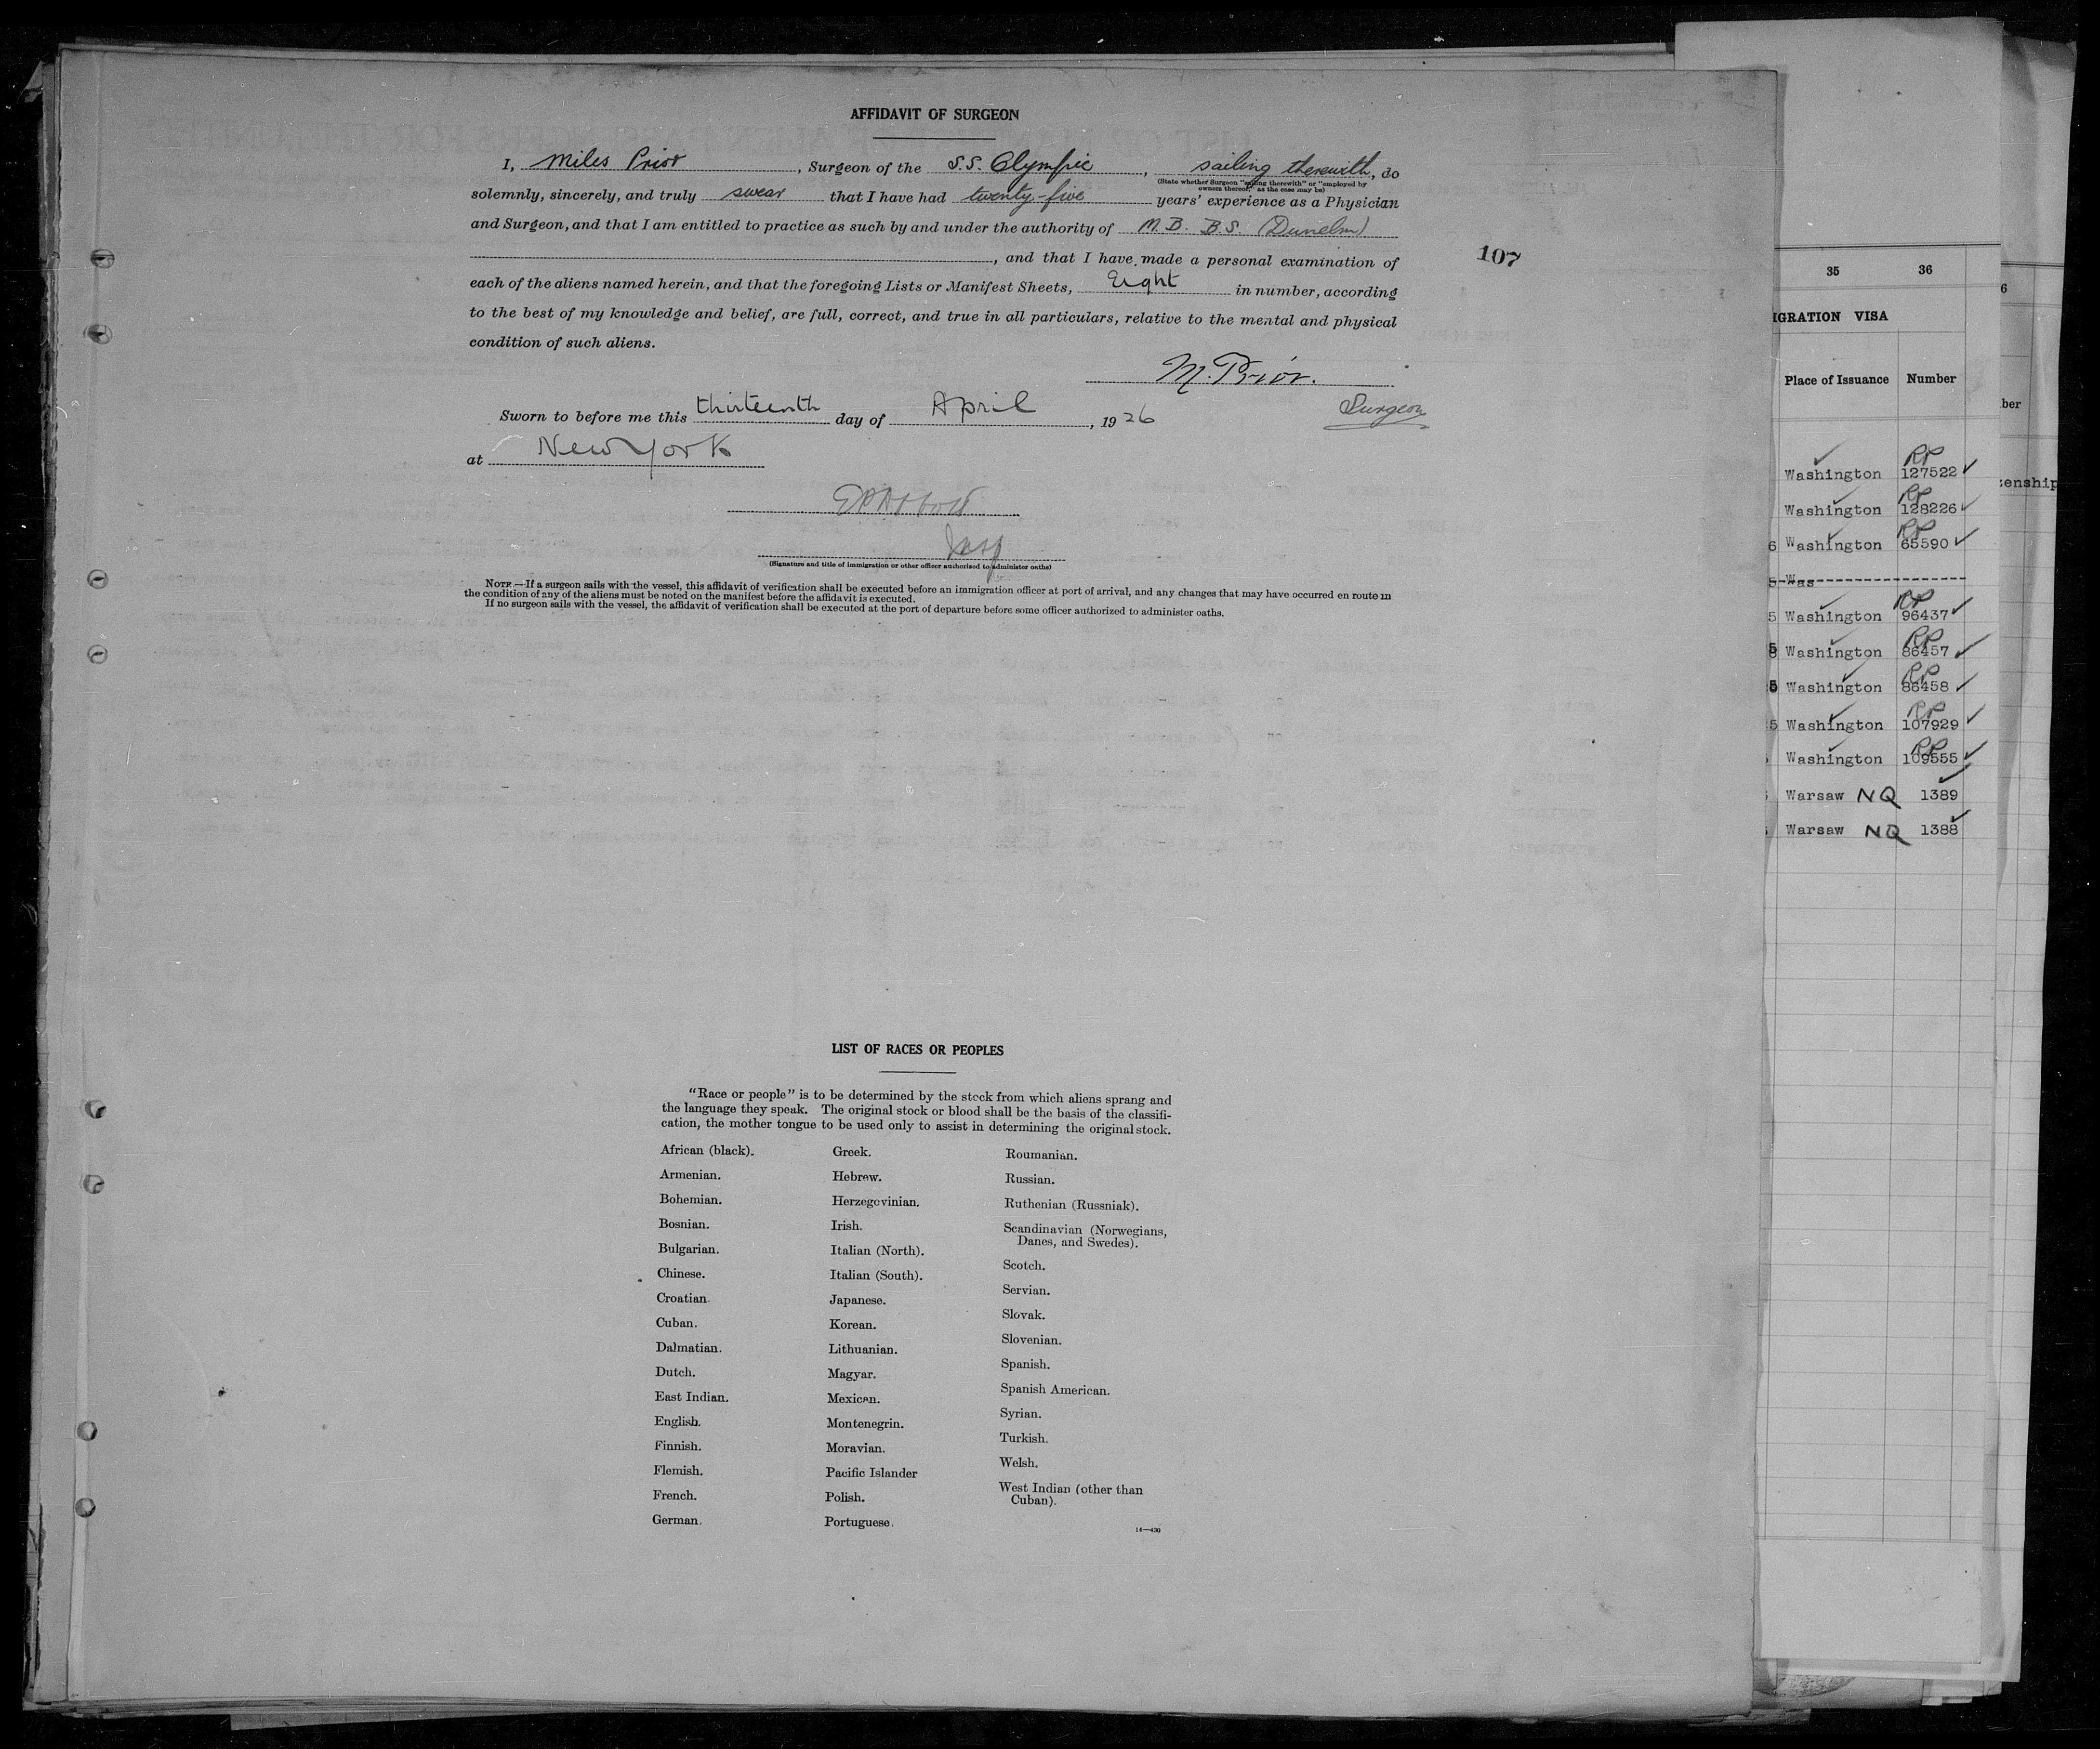 AFFIDAVIT OF SURGEON
I, Miles Prior, Surgeon of the S.S. Olympic, sailing therewith, do
(State whether Surgeon "sailing therewith" or "employed by
owners thereof," as the case may be)
solemnly, sincerely, and truly swear that I have had twenty-five years' experience as a Physician
and Surgeon, and that I am entitled to practice as such by and under the authority of M.B. B.S. (Dunelm)
, and that I have made a personal examination of
107
each of the aliens named herein, and that the foregoing Lists or Manifest Sheets, Eight in number, according
to the best of my knowledge and belief, are full, correct, and true in all particulars, relative to the mental and physical
condition of such aliens.
M. Prior.
Surgeon
Sworn to before me this thirteenth day of April, 1926
at New York
Insp
(Signature and title of immigration or other officer authorized to administer oaths)
NOTE.—If a surgeon sails with the vessel, this affidavit of verification shall be executed before an immigration officer at port of arrival, and any changes that may have occurred en route in
the condition of any of the aliens must be noted on the manifest before the affidavit is executed.
If no surgeon sails with the vessel, the affidavit of verification shall be executed at the port of departure before some officer authorized to administer oaths.
LIST OF RACES OR PEOPLES
"Race or people" is to be determined by the stock from which aliens sprang and
the language they speak. The original stock or blood shall be the basis of the classifi-
cation, the mother tongue to be used only to assist in determining the original stock.
African (black).
Armenian.
Bohemian.
Bosnian.
Bulgarian.
Chinese.
Croatian.
Cuban.
Dalmatian.
Dutch.
East Indian.
English.
Finnish.
Flemish.
French.
German.
Greek.
Hebrew.
Herzegovinian.
Irish.
Italian (North).
Italian (South).
Japanese.
Korean.
Lithuanian.
Magyar.
Mexican.
Montenegrin.
Moravian.
Pacific Islander
Polish.
Portuguese.
Roumanian.
Russian.
Ruthenian (Russniak).
Scandinavian (Norwegians,
Danes, and Swedes).
Scotch.
Servian.
Slovak.
Slovenian.
Spanish.
Spanish American.
Syrian.
Turkish.
Welsh.
West Indian (other than
Cuban).
14—430
35 36
IGRATION VISA
Place of Issuance Number
Washington RP 127522
Washington RP 128226
6 Washington RP 65590
5 Was
5 Washington RP 96437
Washington RP 86457
5 Washington RP 86458
5 Washington RP 107929
Washington RP 109555
Warsaw NQ 1389
Warsaw NQ 1388
6
ber
zenship